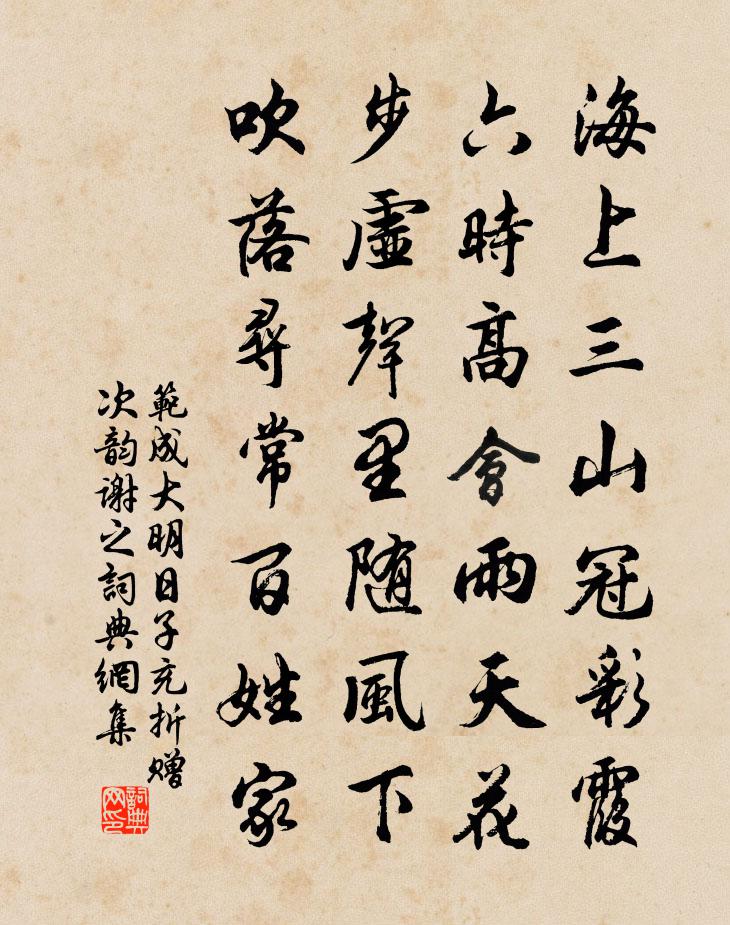 海上三山冠彩霞
六時高會雨天花
步虛聲里随風下
吹落尋常百姓家
範成大明日子充折赠
次韵谢之詞典網集
詞典网印